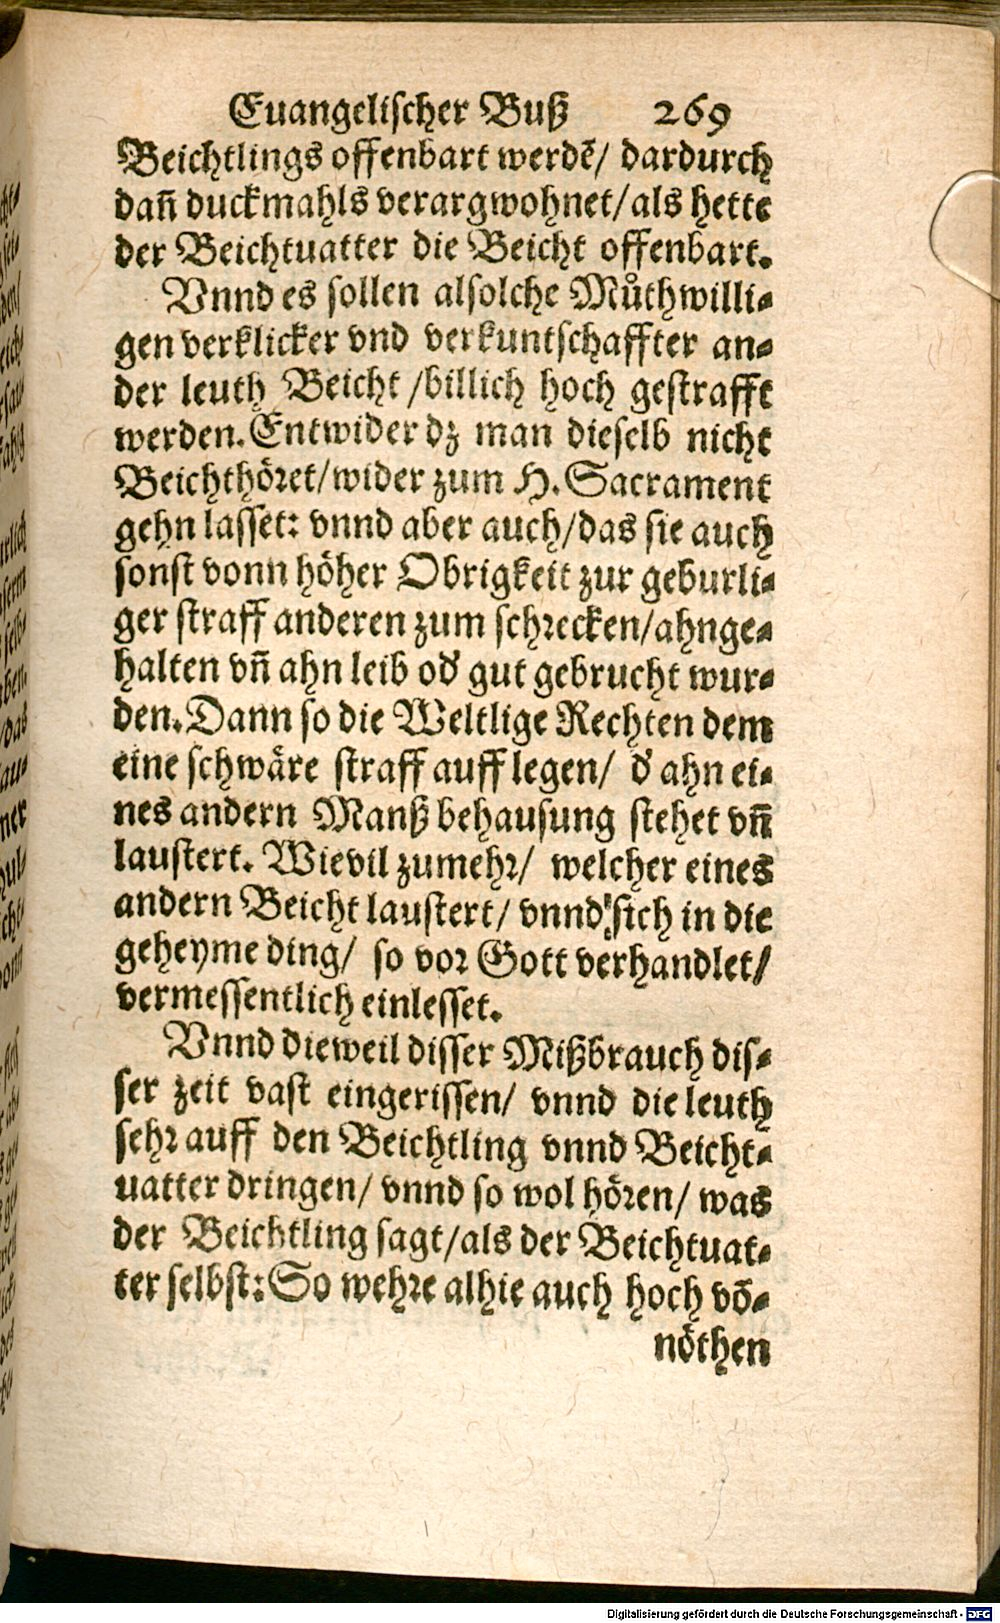 Euangelischer Buß 269
Beichtlings offenbart werdẽ/ dardurch
dañ duckmahls verargwohnet/als hette
der Beichtuatter die Beicht offenbart.
Vnnd es sollen alsolche Můthwilli-
gen verklicker vnd verkuntschaffter an-
der leuth Beicht /billich hoch gestrafft
werden. Entwider dz man dieselb nicht
Beichthöret/wider zum H. Sacrament
gehn lasset: vnnd aber auch/das sie auch
sonst vonn höher Obrigkeit zur geburli-
ger straff anderen zum schrecken/ahnge-
halten vñ ahn leib od' gut gebrucht wur-
den. Dann so die Weltlige Rechten dem
eine schwäre straff auff legen/ d' ahn ei-
nes andern Manß behausung stehet vñ
laustert. Wievil zumehr/ welcher eines
andern Beicht laustert/ vnnd sich in die
geheyme ding/ so vor Gott verhandlet/
vermessentlich einlesset.
Vnnd dieweil disser Mißbrauch dis-
ser zeit vast eingerissen/ vnnd die leuth
sehr auff den Beichtling vnnd Beicht-
uatter dringen/ vnnd so wol hören/ was
der Beichtling sagt/als der Beichtuat-
ter selbst: So wehre alhie auch hoch võ-
nöthen
Digitalisierung gefördert durch die Deutsche Forschungsgemeinschaft - DFG